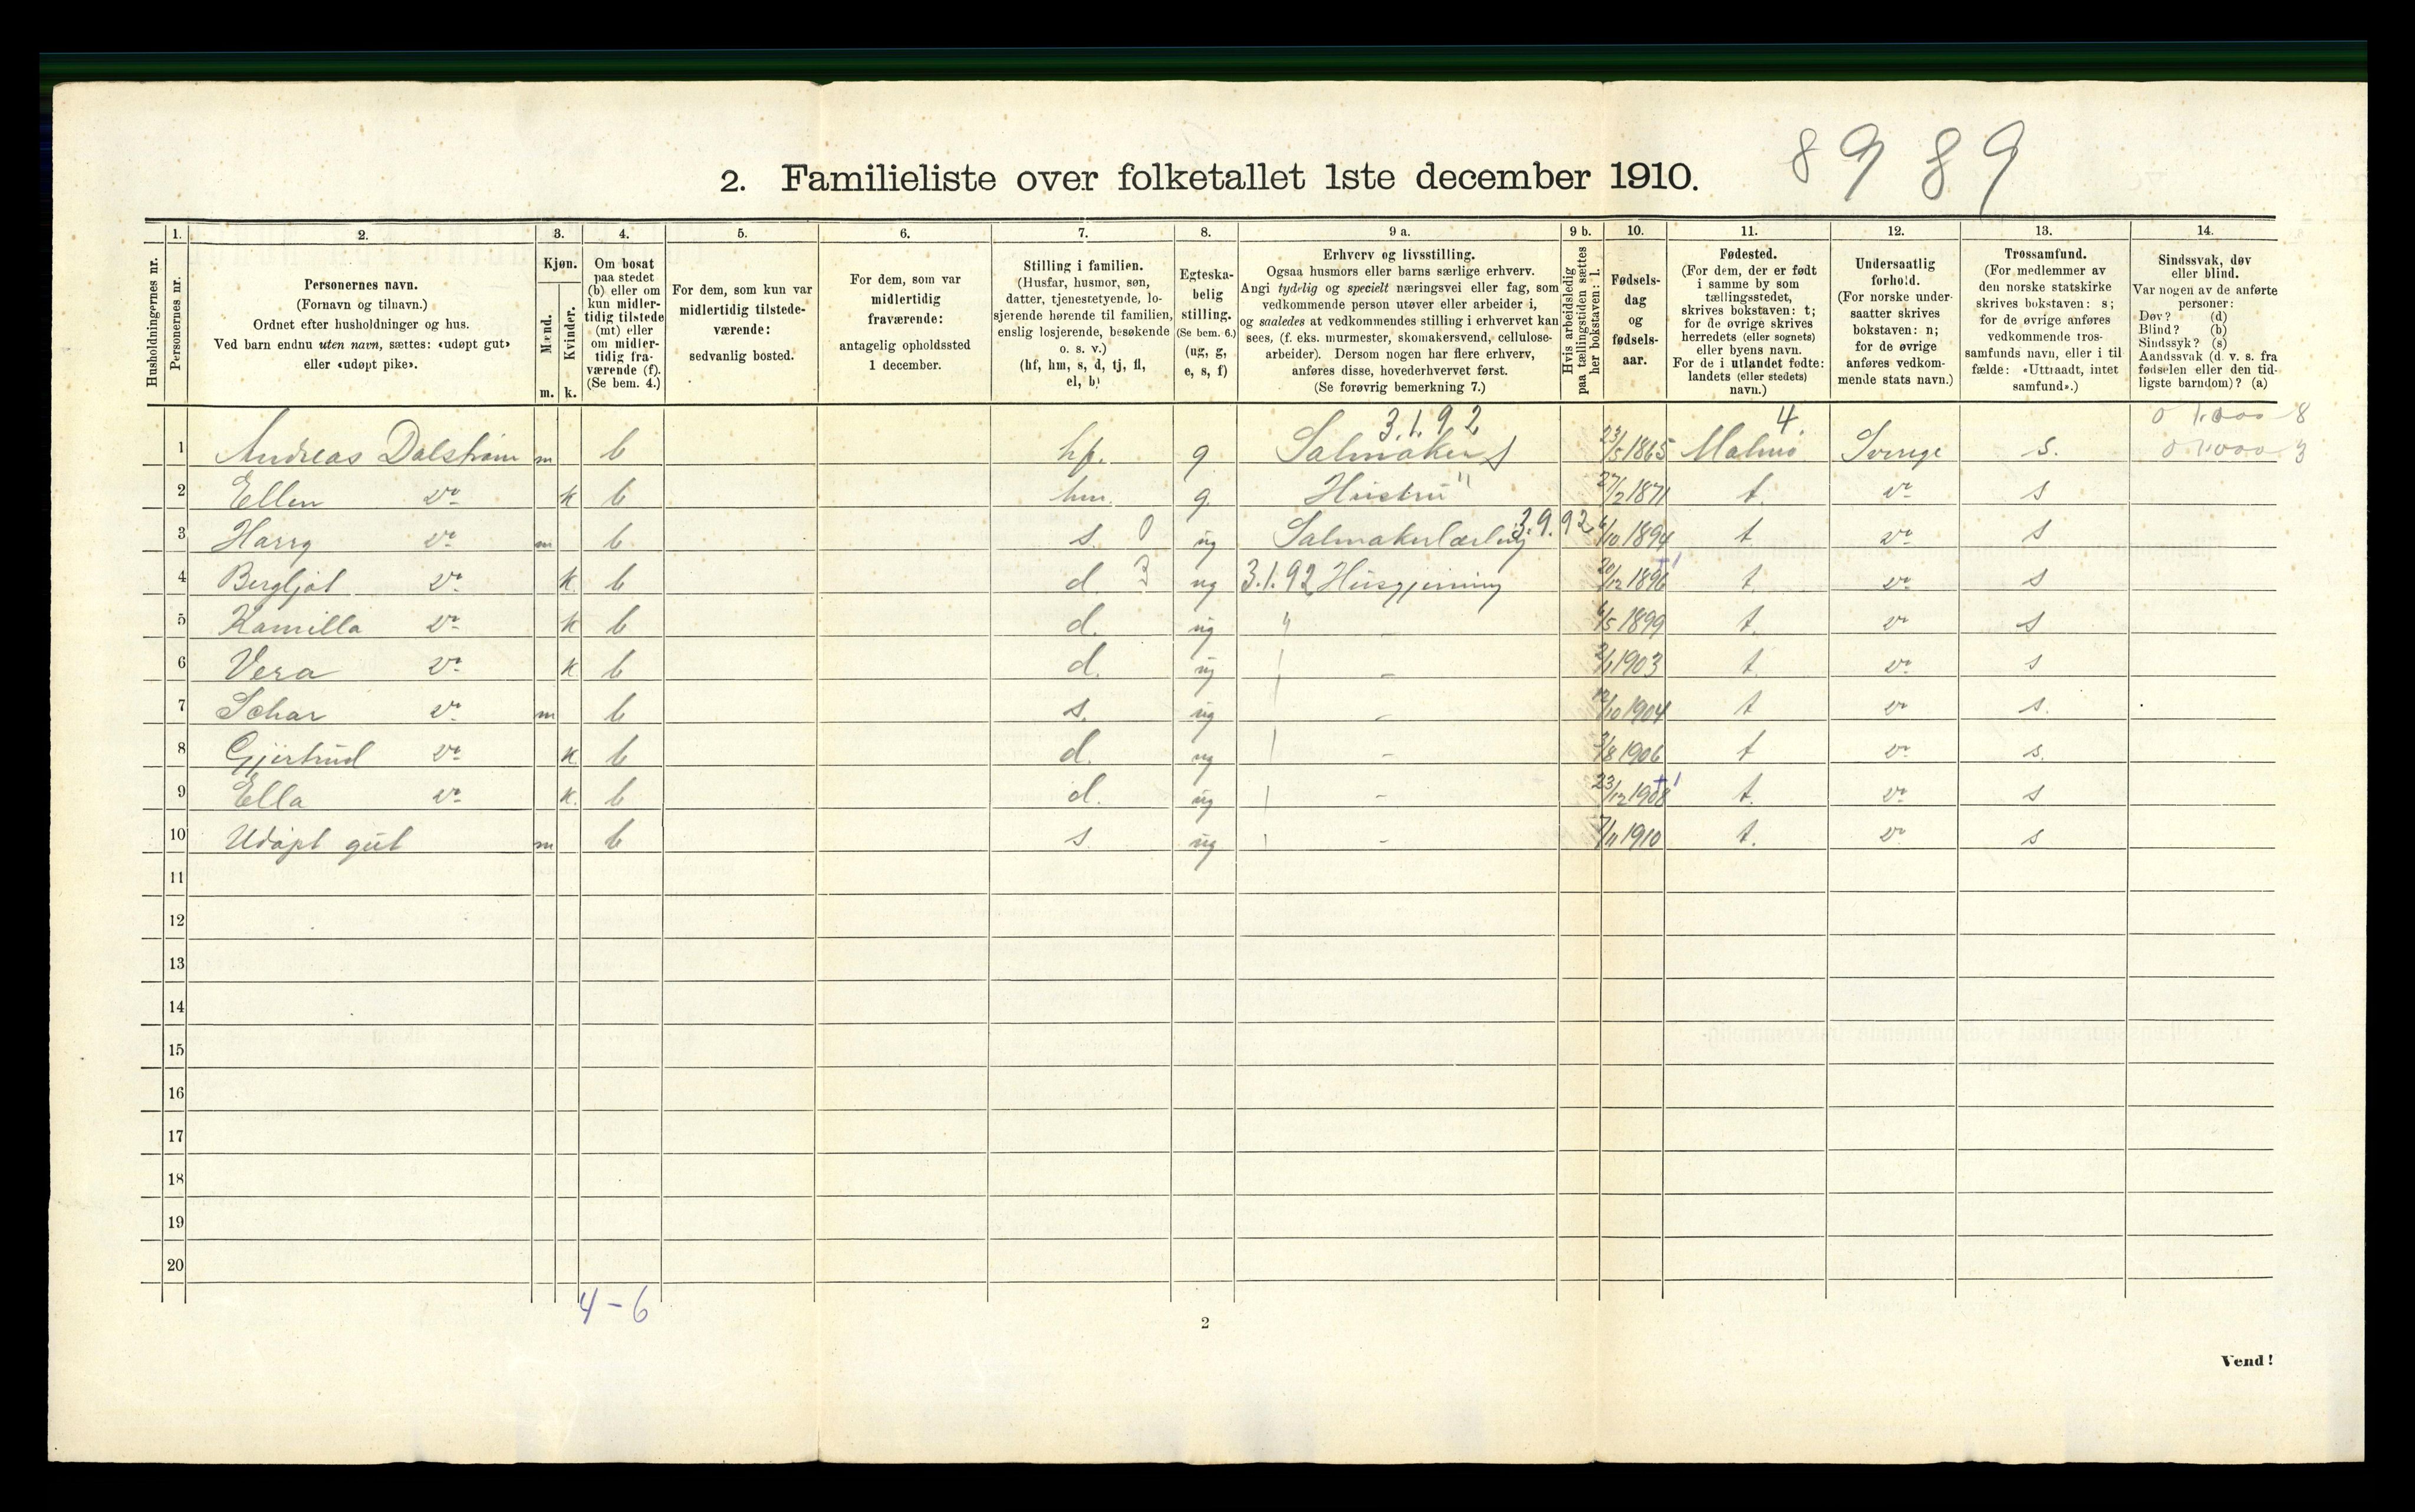 8 9 8 9
2. Familieliste over folketallet 1ste december 1910.
Husholdningernes nr.
1. Personernes nr.
2. Personernes navn.
(Fornavn og tilnavn.)
Ordnet efter husholdninger og hus.
Ved barn endnu uten navn, sættes: «udøpt gut»
eller «udøpt pike».
3. Kjøn.
Mænd. m.
Kvinder. k.
4. Om bosat
paa stedet
(b) eller om
kun midler-
tidig tilstede
(mt) eller
om midler-
tidig fra-
værende (f).
(Se bem. 4.)
5. For dem, som kun var
midlertidig tilstede-
værende:
sedvanlig bosted.
6. For dem, som var
midlertidig
fraværende:
antagelig opholdssted
1 december.
7. Stilling i familien.
(Husfar, husmor, søn,
datter, tjenestetyende, lo-
sjerende hørende til familien,
enslig losjerende, besøkende
o. s. v.)
(hf, hm, s, d, tj, fl,
el, b)
8. Egteska-
belig
stilling.
(Se bem. 6.)
(ug, g,
e, s, f)
9 a. Erhverv og livsstilling.
Ogsaa husmors eller barns særlige erhverv.
Angi tydelig og specielt næringsvei eller fag, som
vedkommende person utøver eller arbeider i,
og saaledes at vedkommendes stilling i erhvervet kan
sees, (f. eks. murmester, skomakersvend, cellulose-
arbeider). Dersom nogen har flere erhverv,
anføres disse, hovederhvervet først.
(Se forøvrig bemerkning 7.)
9 b. Hvis arbeidsledig
paa tællingstiden sættes
her bokstaven: l.
10. Fødsels-
dag
og
fødsels-
aar.
11. Fødested.
(For dem, der er født
i samme by som
tællingsstedet,
skrives bokstaven: t;
for de øvrige skrives
herredets (eller sognets)
eller byens navn.
For de i utlandet fødte:
landets (eller stedets)
navn.)
12. Undersaatlig
forhold.
(For norske under-
saatter skrives
bokstaven: n;
for de øvrige
anføres vedkom-
mende stats navn.)
13. Trossamfund.
(For medlemmer av
den norske statskirke
skrives bokstaven: s;
for de øvrige anføres
vedkommende tros-
samfunds navn, eller i til-
fælde: «Uttraadt, intet
samfund».)
14. Sindssvak, døv
eller blind.
Var nogen av de anførte
personer:
Døv? (d)
Blind? (b)
Sindssyk? (s)
Aandssvak (d. v. s. fra
fødselen eller den tid-
ligste barndom)? (a)
3.1.92 4. 0 1.000 8
1 Andreas Dalstrøm m b hf. g Salmaker s 23/5 1865 Malmø Sverige s. 0 1.000 3
2 Ellen do k b hm. g Hustru " 27/2 1871 t. do s
3 Harry do m b s. 0 ug Salmakerlærling 3.9.92 6/10 1894 t do s
4 Bergljot do k. b d. 3 ug 3.1.92 Husgjerning 20/12 1896 t. do s
5 Kamilla do k b d. ug " - 6/5 1899 t. do s
6 Vera do k. b d. ug - 2/1 1903 t. do s
7 do m b s. ug - 12/10 1904 t do s.
8 Gjertrud do k. b d. ug - 3/8 1906 t do s.
9 Ella do k. b d. ug - 23/12 1908 t. do s
10 Udøpt gut m b s ug - 7/11 1910 t. do s
11
12
13
14
15
16
17
18
19
20
4 - 6
2
Vend!